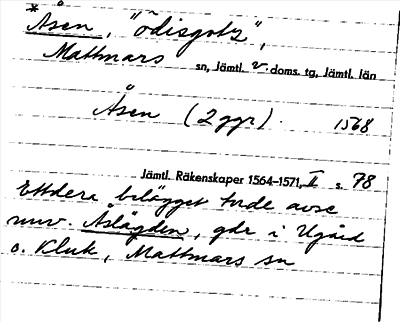 * Åsen, "ödisgotz",
Mattmars sn, Jämtl. v. doms. tg, Jämtl. län
Åsen (2 ggr). 1568
Jämtl. Räkenskaper 1564–1571, II s. 78
Ettdera belägget torde avse
nuv. Åslägden, gdr i Ugård
o. Kluk, Mattmars sn